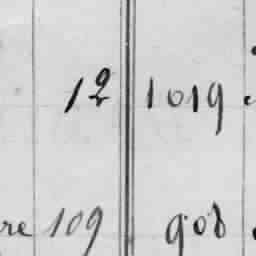 12 1019
re 109 908